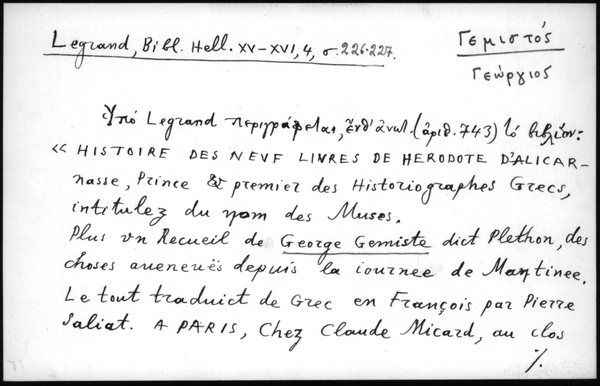 Legrand, Bibl. Hell. XV-XVI, 4, σ. 226-227.
Γεμιστός
Γεώργιος
Ὑπό Legrand περιγράφεται, ἔνθ' ἀνωτ. (ἀριθ. 743) τό βιβλίον:
« HISTOIRE DES NEVF LIVRES DE HERODOTE D'ALICAR-
nasse, Prince & premier des Historiographes Grecs,
intitulez du nom des Muses.
Plus vn Recueil de George Gemiste dict Plethon, des
choses auenues depuis la iournee de Mantinee.
Le tout traduict de Grec en François par Pierre
Saliat. A PARIS, Chez Claude Micard, au clos
./.